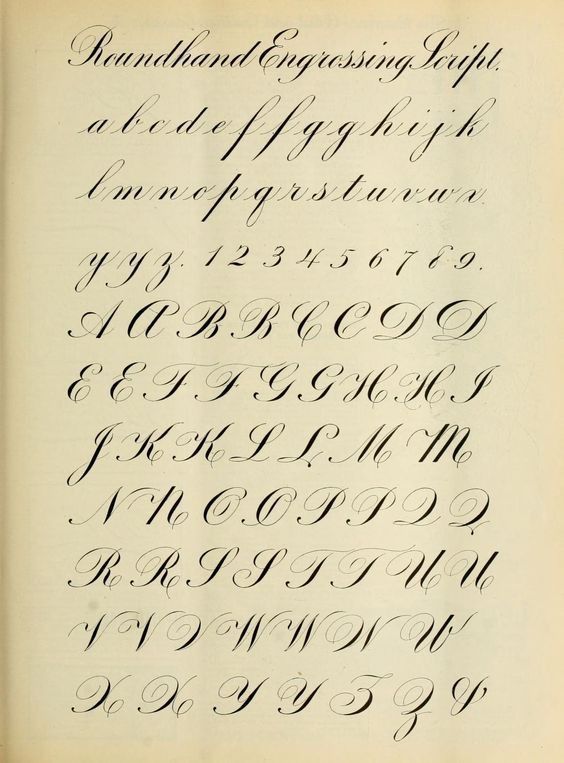 Roundhand Engrossing Script.
a b c d e f f g g h i j k
l m n o p q r s t u v w x
y y z. 1 2 3 4 5 6 7 8 9.
A A B B C C D D
E E F F G G H H I
J K K L L M M
N N O O P P Q Q
R R S S T T U U
V V V W W W W
X X Y Y Z Z &